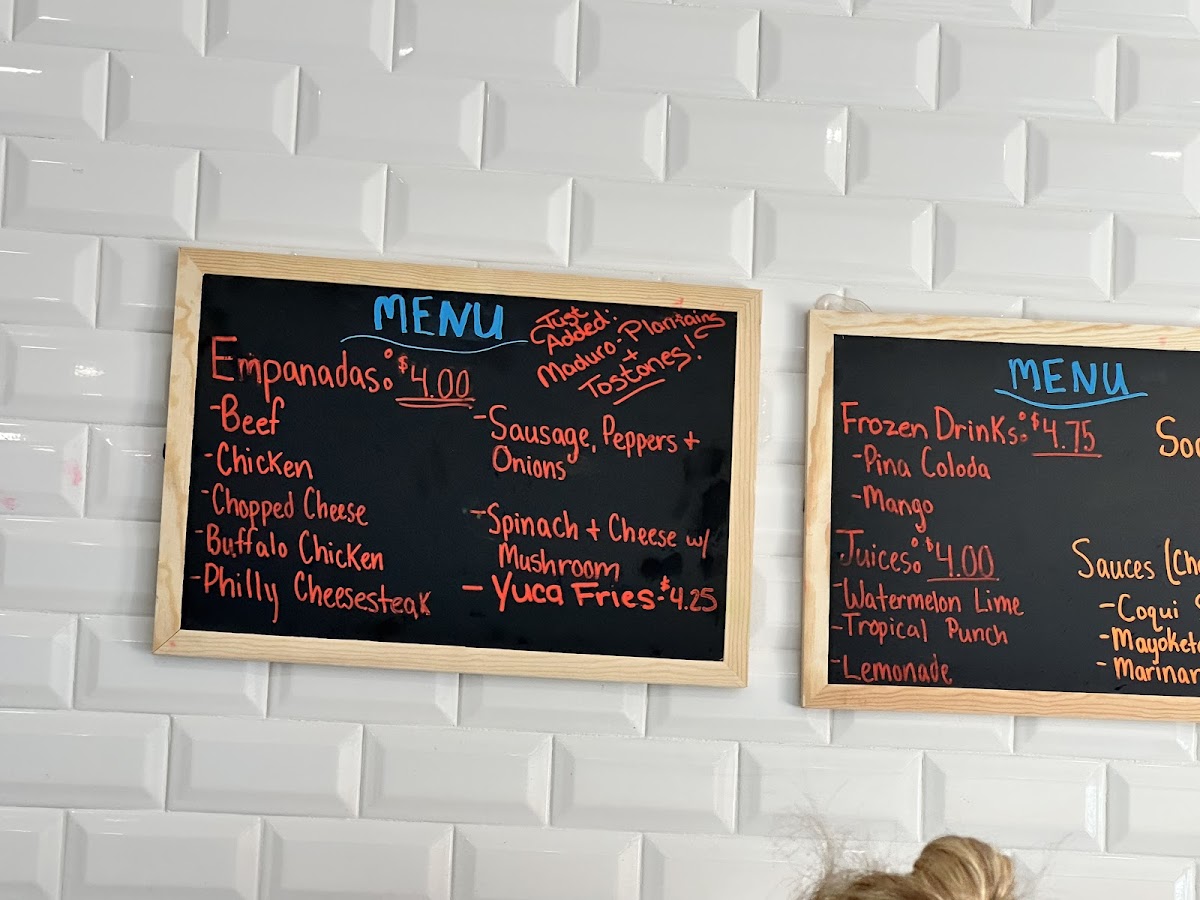 MENU
Just
Added:
Maduro-Plantains
+
Tostones!
Empanadas: $4.00
-Beef
-Chicken
-Chopped Cheese
-Buffalo Chicken
-Philly Cheesesteak
-Sausage, Peppers +
Onions
-Spinach + Cheese w/
Mushroom
- Yuca Fries-$4.25
MENU
Frozen Drinks: $4.75
-Pina Coloda
-Mango
Juices: $4.00
-Watermelon Lime
-Tropical Punch
-Lemonade
Sauces
-Coqui